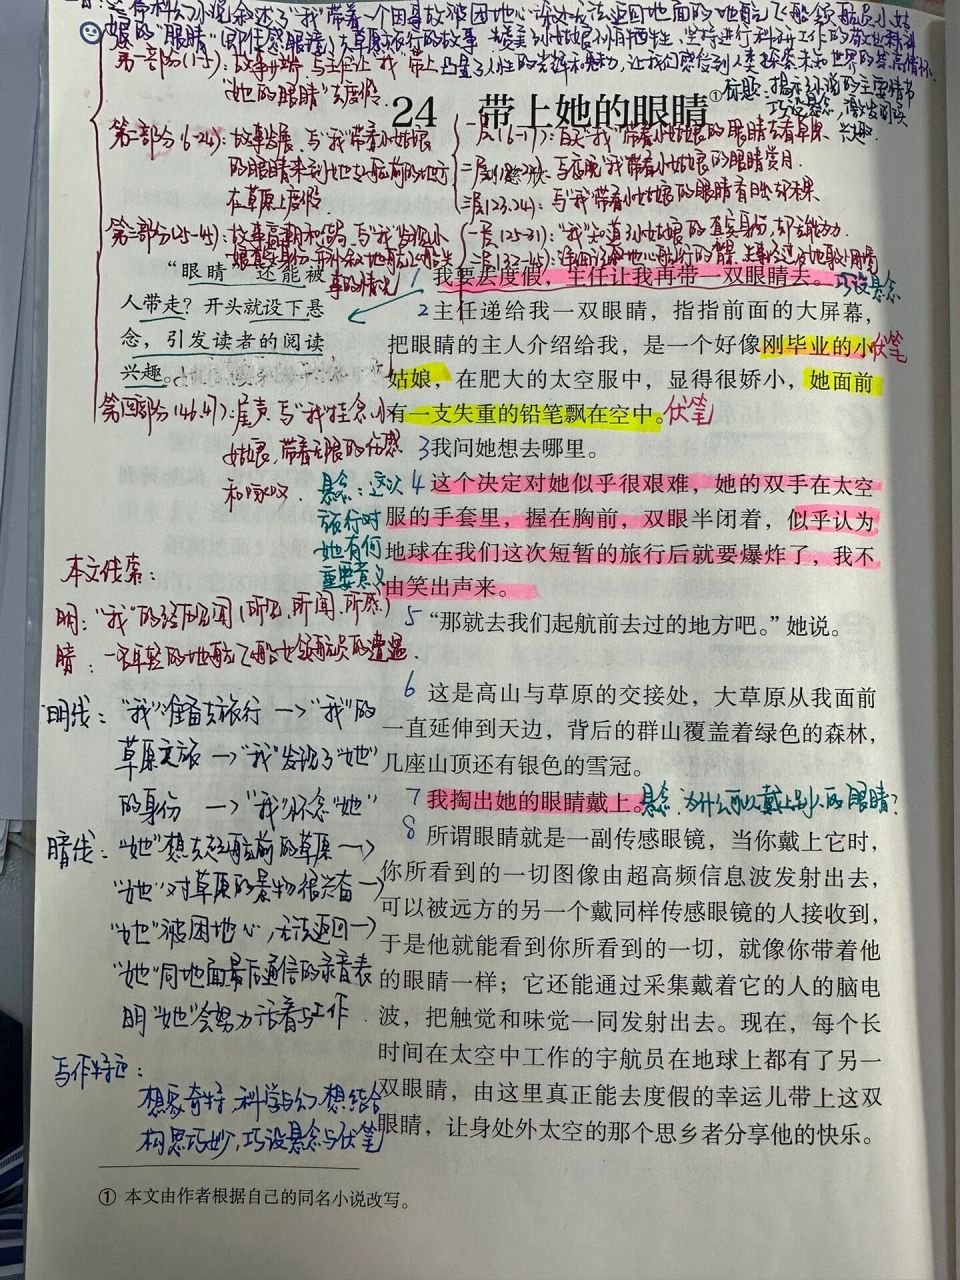 这篇科幻小说叙述了“我”带着一个因事故被困地心深处无法返回地面的地航飞船领航员小姑
娘的“眼睛”(即传感眼镜)去草原旅行的故事
坚持进行科研工作的
第一部分(1-5):故事开端,写主任让“我”带上
“她的眼睛”去度假。
凸显了人性的光辉和魅力,让我们感受到人类探索未知世界的崇高情怀
标题:揭示小说的主要情节
巧设悬念,激发阅读
兴趣。
24 带上她的眼睛①
第二部分(6-24):故事发展,写“我”带着小姑娘
的眼睛来到她去起航前的地方
在草原上度假。
一层(6-17):白天“我”带着小姑娘的眼睛去看草原
写夜晚“我”带着小姑娘的眼睛赏月。
三层(23.24):写“我”带着小姑娘的眼睛看日出
第三部分(25-45):故事高潮和结局,写“我”发现小
姑娘真实身份
事的情况
一层(25-31):“我”知道小姑娘的真实身份
“眼睛”还能被
人带走?开头就设下悬
念,引发读者的阅读
兴趣。
第四部分(46.47):尾声,写“我”挂念小
姑娘,带着无限的伤感
和回味。
1 我要去度假,主任让我再带一双眼睛去。巧设悬念
2 主任递给我一双眼睛,指指前面的大屏幕,
把眼睛的主人介绍给我,是一个好像刚毕业的小伏笔
姑娘,在肥大的太空服中,显得很娇小,她面前
有一支失重的铅笔飘在空中。伏笔
3 我问她想去哪里。
4 这个决定对她似乎很艰难,她的双手在太空
服的手套里,握在胸前,双眼半闭着,似乎认为
地球在我们这次短暂的旅行后就要爆炸了,我不
由笑出声来。
悬念:这次
旅行对
她有何
重要意义
5 “那就去我们起航前去过的地方吧。”她说。
本文线索:
明:“我”的经历见闻(所见、所闻、所感)
暗:一名年轻的地航飞船女领航员的遭遇.
6 这是高山与草原的交接处,大草原从我面前
一直延伸到天边,背后的群山覆盖着绿色的森林,
几座山顶还有银色的雪冠。
7 我掏出她的眼睛戴上。悬念:为什么可以戴上别人的眼睛?
8 所谓眼睛就是一副传感眼镜,当你戴上它时,
你所看到的一切图像由超高频信息波发射出去,
可以被远方的另一个戴同样传感眼镜的人接收到,
于是他就能看到你所看到的一切,就像你带着他
的眼睛一样;它还能通过采集戴着它的人的脑电
波,把触觉和味觉一同发射出去。现在,每个长
时间在太空中工作的宇航员在地球上都有了另一
双眼睛,由这里真正能去度假的幸运儿带上这双
眼睛,让身处外太空的那个思乡者分享他的快乐。
明线:“我”准备去旅行—>“我”的
草原之旅—>“我”发现了“她”
的身份—>“我”怀念“她”
暗线:“她”想去起航前的草原—>
“她”对草原的景物很兴奋—>
“她”被困地心,无法返回—>
“她”同地面最后通信的录音表
明“她”会努力活着与工作
写作特色:
想象奇特,科学与幻想结合
构思巧妙,巧设悬念与伏笔
① 本文由作者根据自己的同名小说改写。